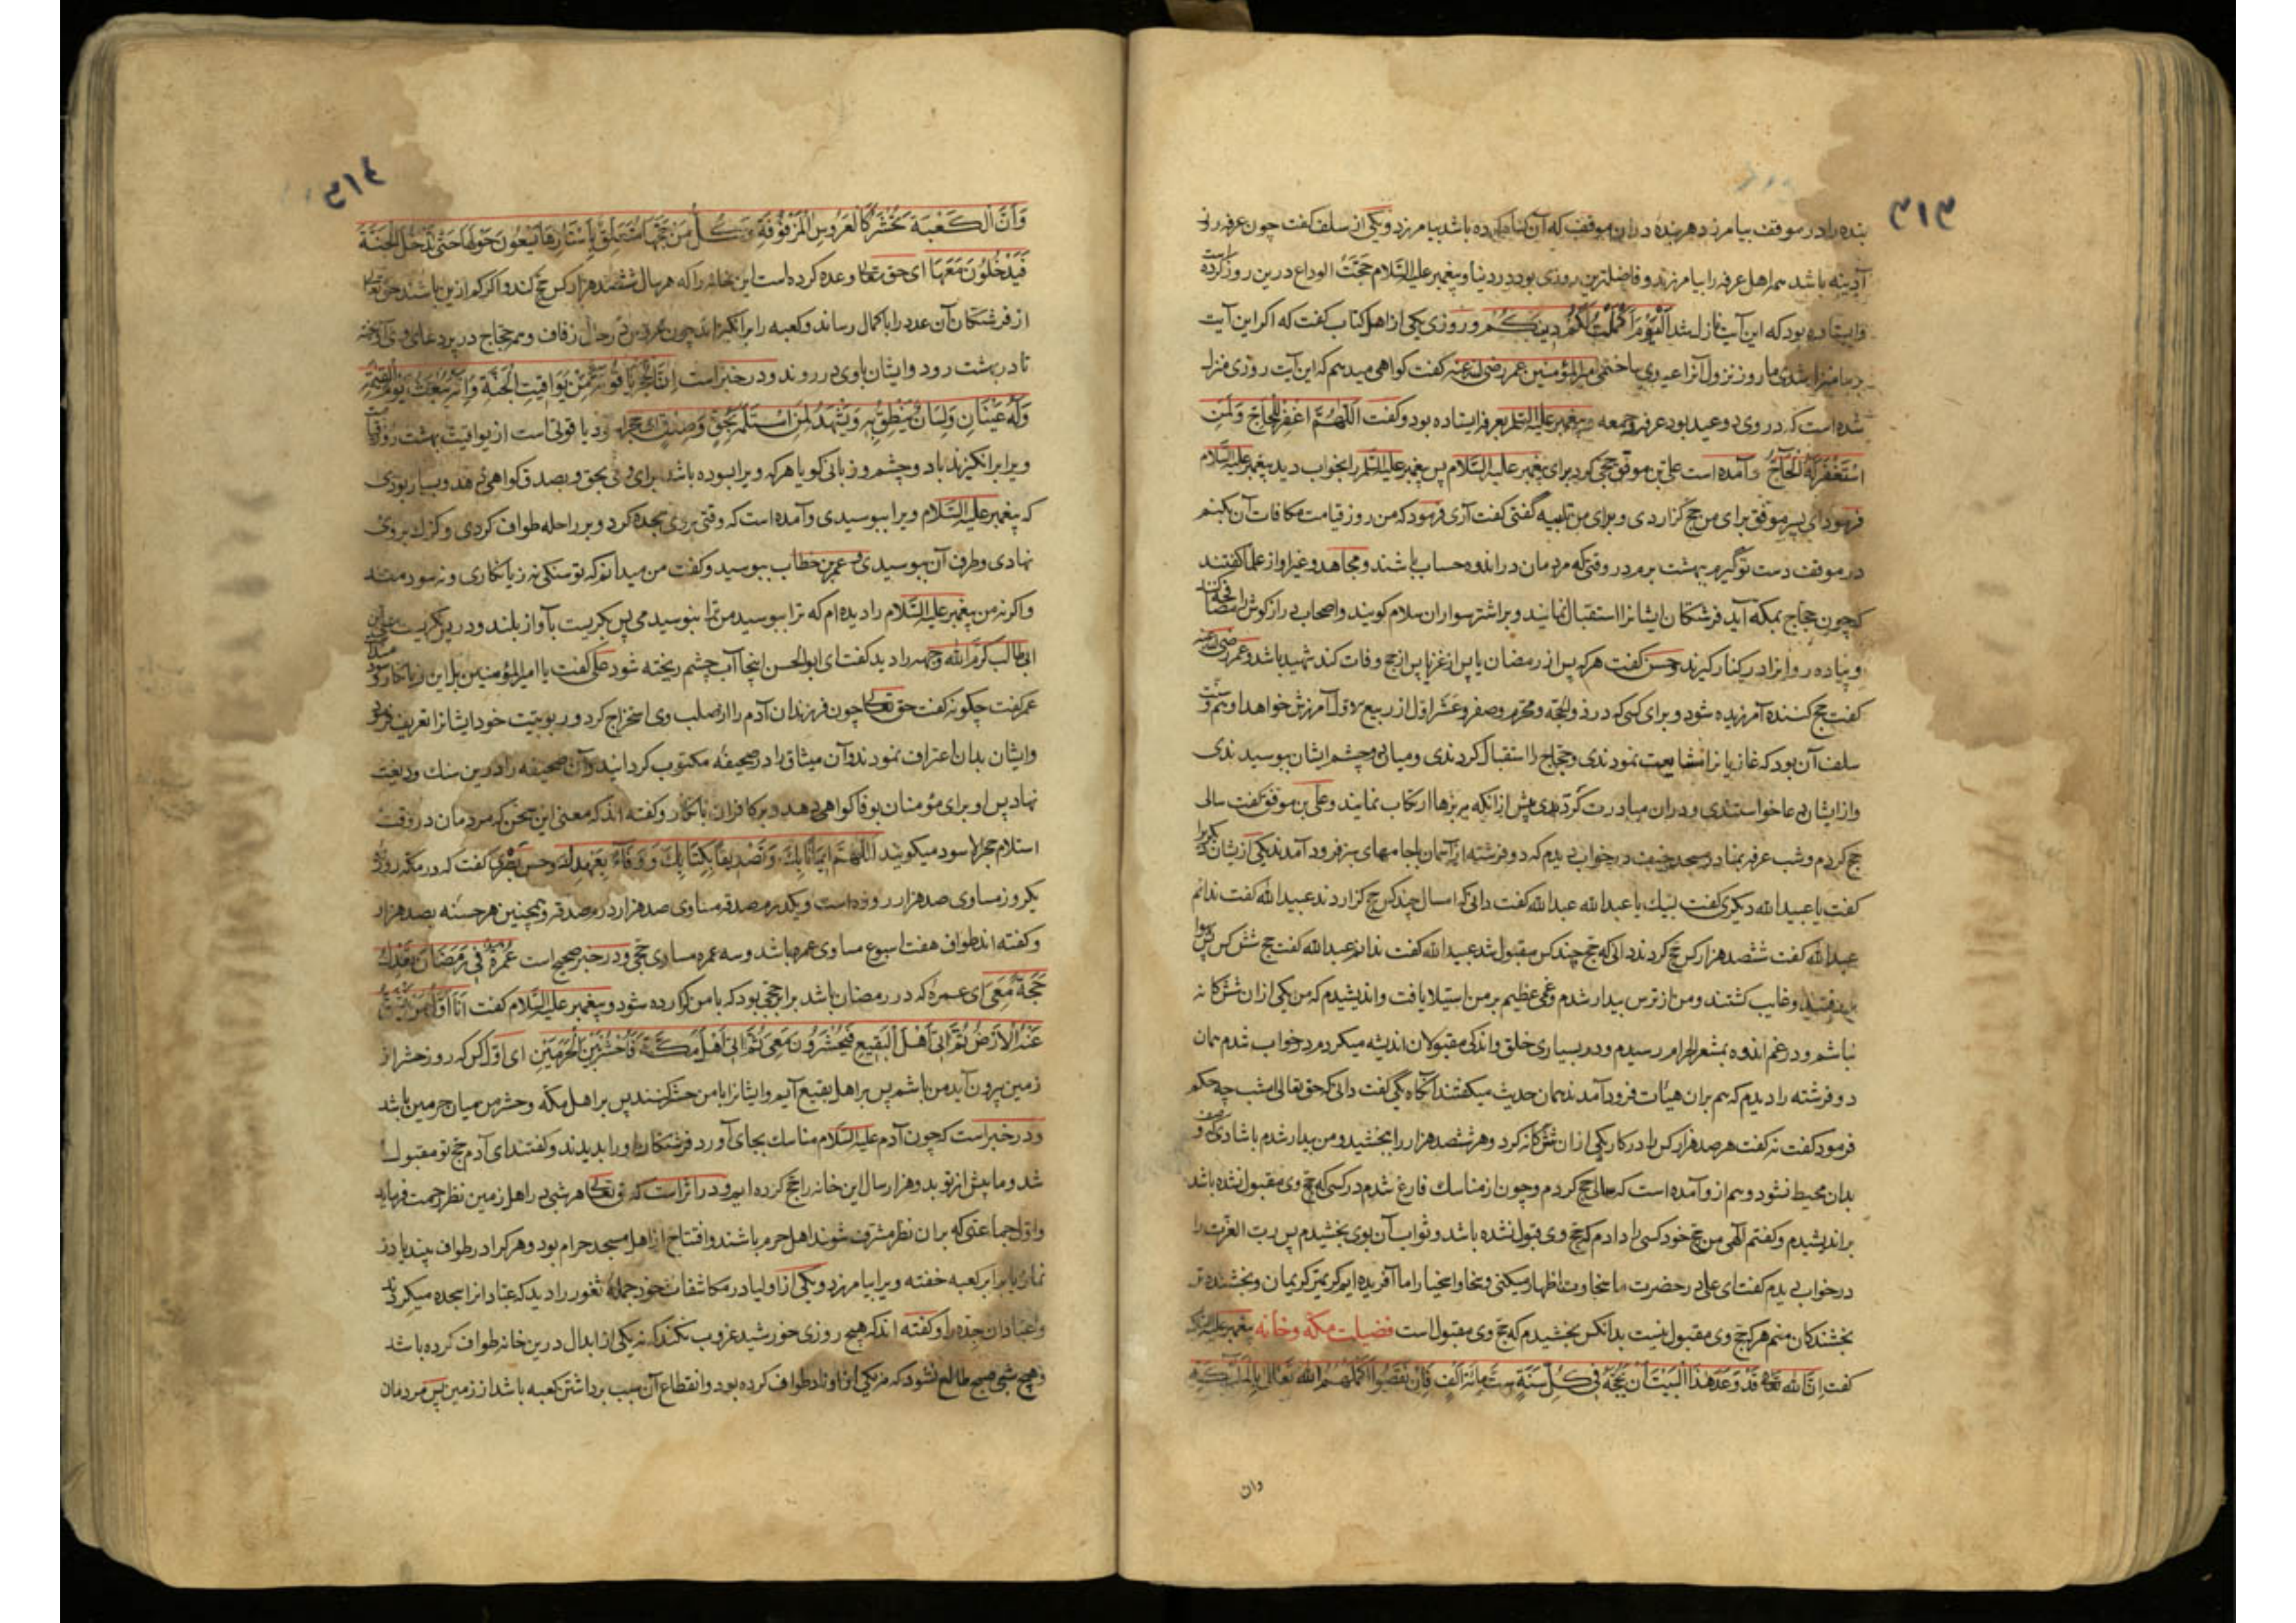 ٣١٣
بنده را در موقف بیامرزد هر بنده در آن موقف که آن گناه کرده باشد بیامرزد و یکی از سلف گفت چون عرفه روز
آدینه باشد همه اهل عرفه را بیامرزند و فاضلترین روزی بود در دنیا و پیغمبر علیه السّلام حجّتُ الوداع درین روز کرده است
وایستاده بود که این آیت نازل شد اَلْیَوْمَ اَکْمَلْتُ لَکُمْ دِینَکُمْ و روزی یکی از اهل کتاب گفت که اگر این آیت
بر ما منزل شدی ما روز نزول آنرا عیدی ساختمی امیر المؤمنین عمر رضی الله عنه گفت گواهی میدهم که این آیت روزی منزل
شده است که در وی دو عید بود عرفه و جمعه پیغمبر علیه السّلام بعرفه ایستاده بود و گفت اَللّهُمَّ اغْفِرْ لِلْحَاجِّ وَلِمَنِ
اسْتَغْفَرَ لَهُ الْحَاجُّ و آمده است علی بن موفق حجّی کرد برای پیغمبر علیه السّلام پس پیغمبر علیه السّلام را بخواب دید پیغمبر علیه السّلام
فرمود ای پسر موفق برای من حج گزاردی و برای من تلبیه گفتی گفت آری فرمود که من روز قیامت مکافات آن بکنم
در موقف دست تو گیرم ببهشت برم در وقتی که مردمان در اندوه حساب باشند و مجاهد و غیر او از علما گفتند
که چون حجاج بمکه آید فرشتگان ایشانرا استقبال نمایند و بر اشتر سواران سلام گویند و اصحاب دراز گوش را مصافحه کنند
و پیاده روانرا در کنار گیرند و حسن گفت هر که پس از رمضان یا پس از غزا یا پس از حج وفات کند شهید باشد و عمر رضی الله عنه
گفت حج کننده آمرزیده شود و برای کسی که در ذو الحجّه و محرّم و صفر و عشر اوّل از ربیع الاوّل آمرزش خواهد او هم و سنّت
سلف آن بود که غازیانرا مشایعت نمودندی و حجّاج را استقبال کردندی و میان دو چشم ایشان ببوسیدندی
و از ایشان دعا خواستندی و در آن مبادرت کردندی پیش از آنکه بر بزهها ارتکاب نمایند و علی بن موفق گفت سالی
حج کردم و شب عرفه بمنا در مسجد خیف در خواب دیدم که دو فرشته از آسمان با جامهای سبز فرود آمدند یکی ازیشان دیگریرا
گفت یا عبید الله دیگری گفت لبّیك یا عبد الله عبد الله گفت دانی که امسال چند کس حج گزاردند عبید الله گفت ندانم
عبد الله گفت ششصد هزار کس حج کردند دانی که حج چند کس مقبول شد عبید الله گفت ندانم عبد الله گفت حج شش کس پس
برفتند و غایب گشتند و من از ترس بیدار شدم و غمی عظیم بر من استیلا یافت و اندیشیدم که من یکی از آن ششگانه
نباشم و در غم اندوه بمشعر الحرام رسیدم و در بسیاری خلق و اندکی مقبولان اندیشه میکردم در خواب شدم همان
دو فرشته را دیدم که هم بران هیئات فرود آمدند همان حدیث میگفتند آنگاه یکی گفت دانی که حق تعالی امشب چه حکم
فرمود گفت نه گفت هر صد هزار کس را در کار یکی از آن ششگانه کرد و هر ششصد هزار را ببخشید و من بیدار شدم با شادی که وصف
بدان محیط نشود و هم از و آمده است که سالی حج کردم و چون از مناسك فارغ شدم در کسی که حج وی مقبول نشده باشد
براندیشیدم و گفتم الهی من حج خود کسی را دادم که حج وی قبول نشده باشد و ثواب آن بوی بخشیدم پس ربّ العزّت را
در خواب دیدم گفت ای علی در حضرت ما سخاوت اظهار میکنی و سخا و اسخیا را ما آفریده ایم کریمتر کریمان و بخشنده تر
بخشندگان منم هر که حج وی مقبول نیست بدانکس بخشیدم که حج وی مقبول است فضیلت مکّه و خانه پیغمبر علیه السّلام
گفت اِنَّ اللهَ تَعَالی قَدْ وَعَدَ هٰذَا الْبَیْتَ اَنْ یَحُجَّهُ فِی کُلِّ سَنَةٍ سِتُّ مِائَةِ اَلْفٍ فَاِنْ نَقَصُوا اَکْمَلَهُمُ اللهُ تَعَالی بِالْمَلٰئِکَةِ
وان
٣١٤
وَاَنَّ الْکَعْبَةَ تُحْشَرُ کَالْعَرُوسِ الْمَزْفُوفَةِ وَکُلُّ مَنْ حَجَّهَا یَتَعَلَّقُ بِاَسْتَارِهَا یَسْعَوْنَ حَوْلَهَا حَتّٰی تَدْخُلَ الْجَنَّةَ
فَیَدْخُلُونَ مَعَهَا ای حق تعالی وعده کرده است این خانه را که هر سال ششصد هزار کس حج کند و اگر کم ازین باشند حق تعالی
از فرشتگان آن عدد را باکمال رساند و کعبه را برانگیزاند چون عروس در حال زفاف و هر حجاج در پرده‌های وی آویخته
تا در بهشت رود و ایشان با وی در روند و در خبر است اِنَّ الْحَجَرَ یَاقُوتَةٌ مِنْ یَوَاقِیتِ الْجَنَّةِ وَاِنَّهُ یُبْعَثُ یَوْمَ الْقِیٰمَةِ
وَلَهُ عَیْنَانِ وَلِسَانٌ یَنْطِقُ بِهِ وَیَشْهَدُ لِمَنِ اسْتَلَمَهُ بِحَقٍّ وَصِدْقٍ ای حجر اسود یاقوتی است از یواقیت بهشت روز قیامت
ویرا برانگیزند با دو چشم و زبانی گویا هر که ویرا ببوسیده باشد برای وی بحق و بصدق گواهی دهد و بسیار بودی
که پیغمبر علیه السّلام ویرا ببوسیدی و آمده است که وقتی بر وی سجده کرد و بر راحله طواف کردی و کژك بر وی
نهادی و طرف آن ببوسیدی و عمر بن خطاب ببوسید و گفت من میدانم که تو سنگی نه زیانکاری و نه سودمند
و اگر نه من پیغمبر علیه السّلام را دیده‌ام که ترا ببوسید من ترا نبوسیدمی پس بگریست بآواز بلند و در پس نگریست علی ابن
ابی طالب کرّم الله وجهه را دید گفت ای ابو الحسن اینجا آب چشم ریخته شود علی گفت یا امیر المؤمنین بل این زیانکار و سود
عمر گفت چگونه گفت حق تعالی چون فرزندان آدم را از صلب وی استخراج کرد و ربوبیّت خود ایشانرا تعریف فرمود
و ایشان بدان اعتراف نمودند و آن میثاق را در صحیفه مکتوب گردانید و آن صحیفه را درین سنك ودیعت
نهاد پس او برای مؤمنان بوفا گواهی دهد و بر کافران بانکار و گفته اند که معنی این سخن که مردمان در وقت
استلام حجر الاسود میگویند اَللّهُمَّ اِیمَانًا بِكَ وَتَصْدِیقًا بِکِتَابِكَ وَوَفَاءً بِعَهْدِكَ و حسن بصری گفت که در مکّه روزه
یکروز مساوی صد هزار روزه است و یکدرم صدقه مساوی صد هزار درم صدقه و همچنین هر حسنه بصد هزار
و گفته اند طواف هفت اسبوع مساوی عمره باشد و سه عمره مساوی حجّی و در خبر صحیح است عُمْرَةٌ فِی رَمَضَانَ تَعْدِلُ
حَجَّةً مَعِی ای عمره که در رمضان باشد برابر حجّی بود که با من گزارده شود و پیغمبر علیه السّلام گفت اَنَا اَوَّلُ مَنْ تَنْشَقُّ
عَنْهُ الْاَرْضُ ثُمَّ اٰتِی اَهْلَ الْبَقِیعِ فَیُحْشَرُونَ مَعِی ثُمَّ اٰتِی اَهْلَ مَکَّةَ فَاُحْشَرُ بَیْنَ الْحَرَمَیْنِ ای اوّل کس که روز حشر از
زمین برون آید من باشم پس بر اهل بقیع آیم و ایشانرا با من حشر کنند پس بر اهل مکّه و حشر من میان حرمین باشد
و در خبر است که چون آدم علیه السّلام مناسك بجای آورد فرشتگان او را بدیدند و گفتند ای آدم حج تو مقبول
شد و ما پیش از تو بدو هزار سال این خانه را حج کرده ایم و در اثر است که حق تعالی هر شبی در اهل زمین نظر رحمت فرماید
و اوّل جماعتی که بران نظر مشرّف شوند اهل حرم باشند و افتتاح از اهل مسجد حرام بود و هر کرا در طواف بیند یا در
نماز یا برابر کعبه خفته ویرا بیامرزد و یکی از اولیا در مکاشفات خود جمله ثغور را دید که عبّادانرا سجده میکردند
و عبّادان جدّه را و گفته اند که هیچ روزی خورشید غروب نکند که نه یکی از ابدال درین خانه طواف کرده باشد
و هیچ شبی صبح طالع نشود که نه یکی از اوتاد طواف کرده بود و انقطاع آن سبب برداشتن کعبه باشد از زمین پس مردمان